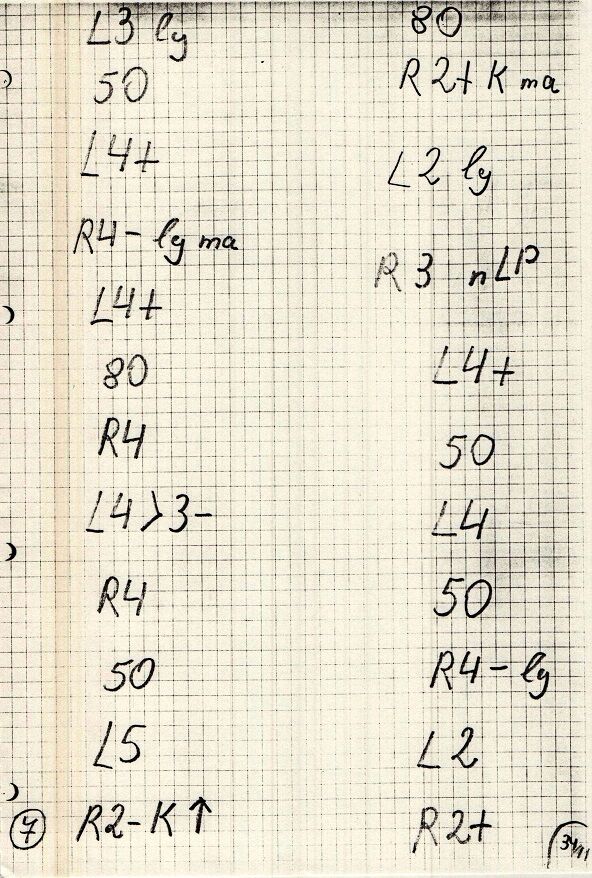 L3 ly
50
L4+
R4- ly ma
L4+
80
R4
L4>3-
R4
50
L5
7 R2-K↑
80
R2+ K ma
L2 ly
R3 nLP
L4+
50
L4
50
R4- ly
L2
R2+